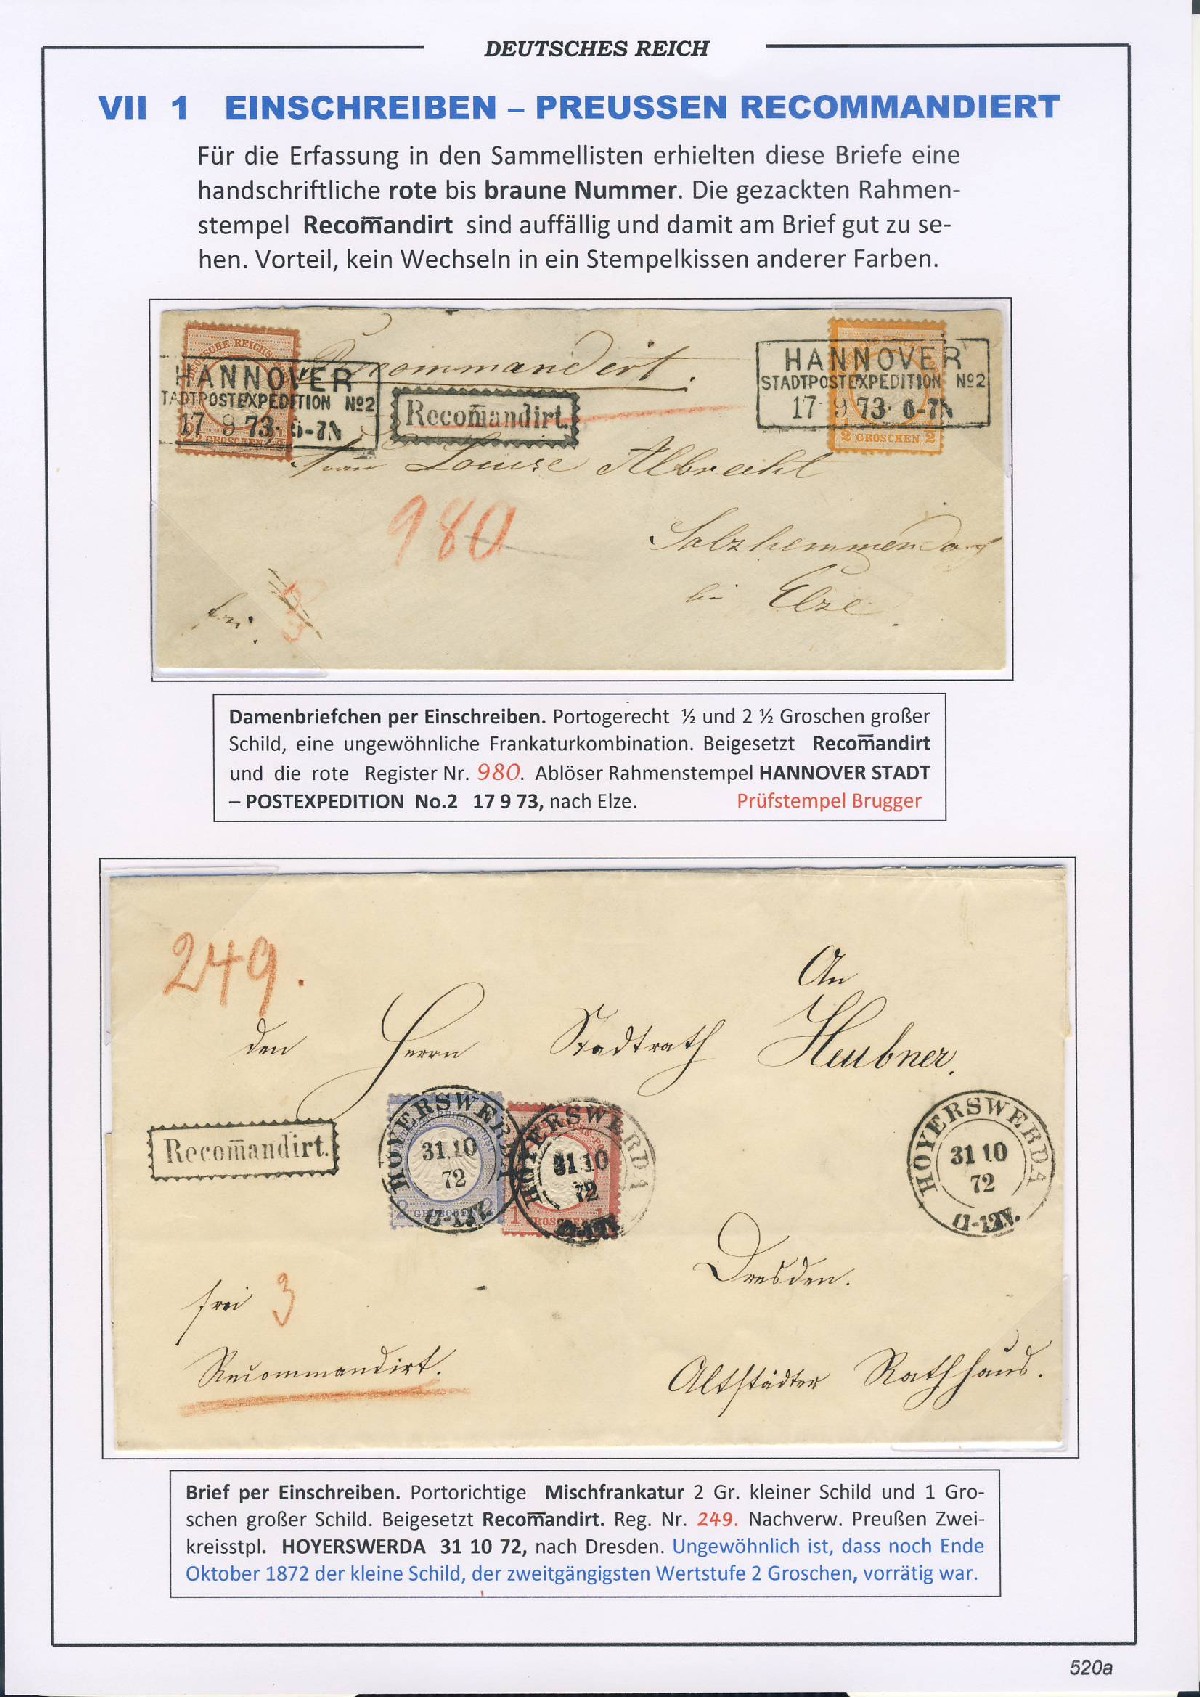 DEUTSCHES REICH
VII 1 EINSCHREIBEN – PREUSSEN RECOMMANDIERT
Für die Erfassung in den Sammellisten erhielten diese Briefe eine
handschriftliche rote bis braune Nummer. Die gezackten Rahmen-
stempel Recom̅andirt sind auffällig und damit am Brief gut zu se-
hen. Vorteil, kein Wechseln in ein Stempelkissen anderer Farben.
DEUTSCHE REICHS
Recommandirt.
HANNOVER
TADTPOSTEXPEDITION No2
17 9 73 6-7N
GROSCHEN
Recom̅andirt.
HANNOVER
STADTPOSTEXPEDITION No2
17 9 73 6-7N
2 GROSCHEN 2
Frau Louise Albrecht
980
Salzhemmendorf
bei Elze.
frei.
Damenbriefchen per Einschreiben. Portogerecht ½ und 2 ½ Groschen großer
Schild, eine ungewöhnliche Frankaturkombination. Beigesetzt Recom̅andirt
und die rote Register Nr. 980. Ablöser Rahmenstempel HANNOVER STADT
– POSTEXPEDITION No.2 17 9 73, nach Elze. Prüfstempel Brugger
249.
An
den Herrn Stadtrath Heubner.
Recom̅andirt.
HOYERSWERDA
31 10
72
11-12V.
HOYERSWERDA
31 10
72
11-12V.
2 GROSCHEN
1 GROSCHEN 1
HOYERSWERDA
31 10
72
11-12V.
Dresden.
frei 3
Recommandirt.
Altstädter Rathhaus.
Brief per Einschreiben. Portorichtige Mischfrankatur 2 Gr. kleiner Schild und 1 Gro-
schen großer Schild. Beigesetzt Recom̅andirt. Reg. Nr. 249. Nachverw. Preußen Zwei-
kreisstpl. HOYERSWERDA 31 10 72, nach Dresden. Ungewöhnlich ist, dass noch Ende
Oktober 1872 der kleine Schild, der zweitgängigsten Wertstufe 2 Groschen, vorrätig war.
520a